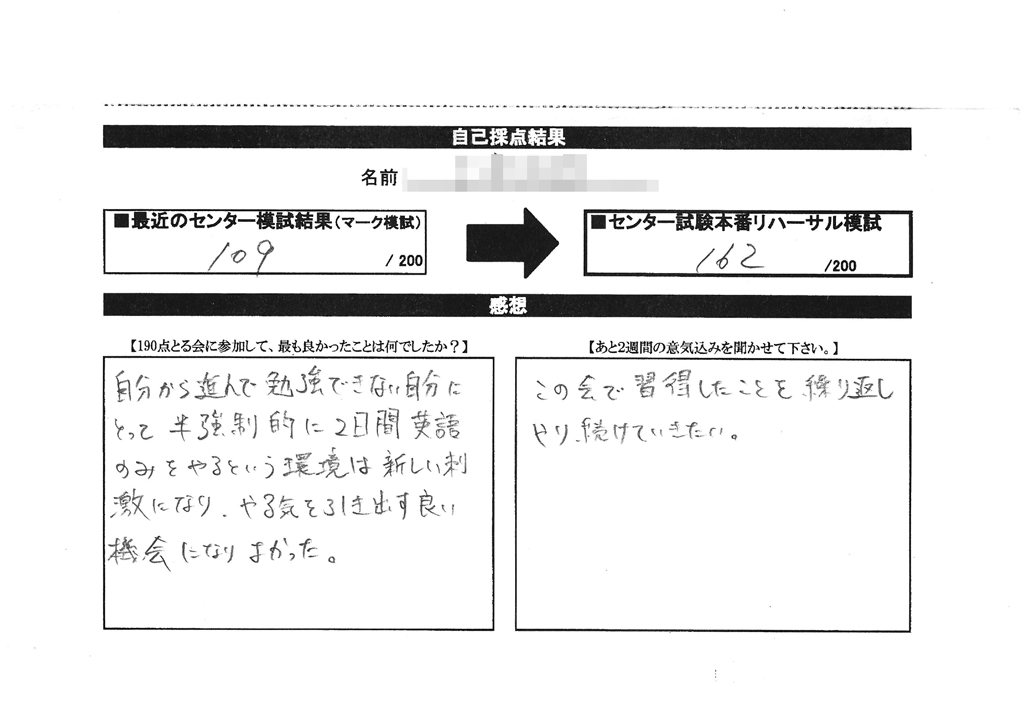 自己採点結果
名前
■最近のセンター模試結果(マーク模試)
109 / 200
■センター試験本番リハーサル模試
162 /200
感想
【190点とる会に参加して、最も良かったことは何でしたか？】
自分から進んで勉強できない自分に
とって半強制的に2日間英語
のみをやるという環境は新しい刺
激になり、やる気を引き出す良い
機会になりよかった。
【あと2週間の意気込みを聞かせて下さい。】
この会で習得したことを繰り返し
やり続けていきたい。